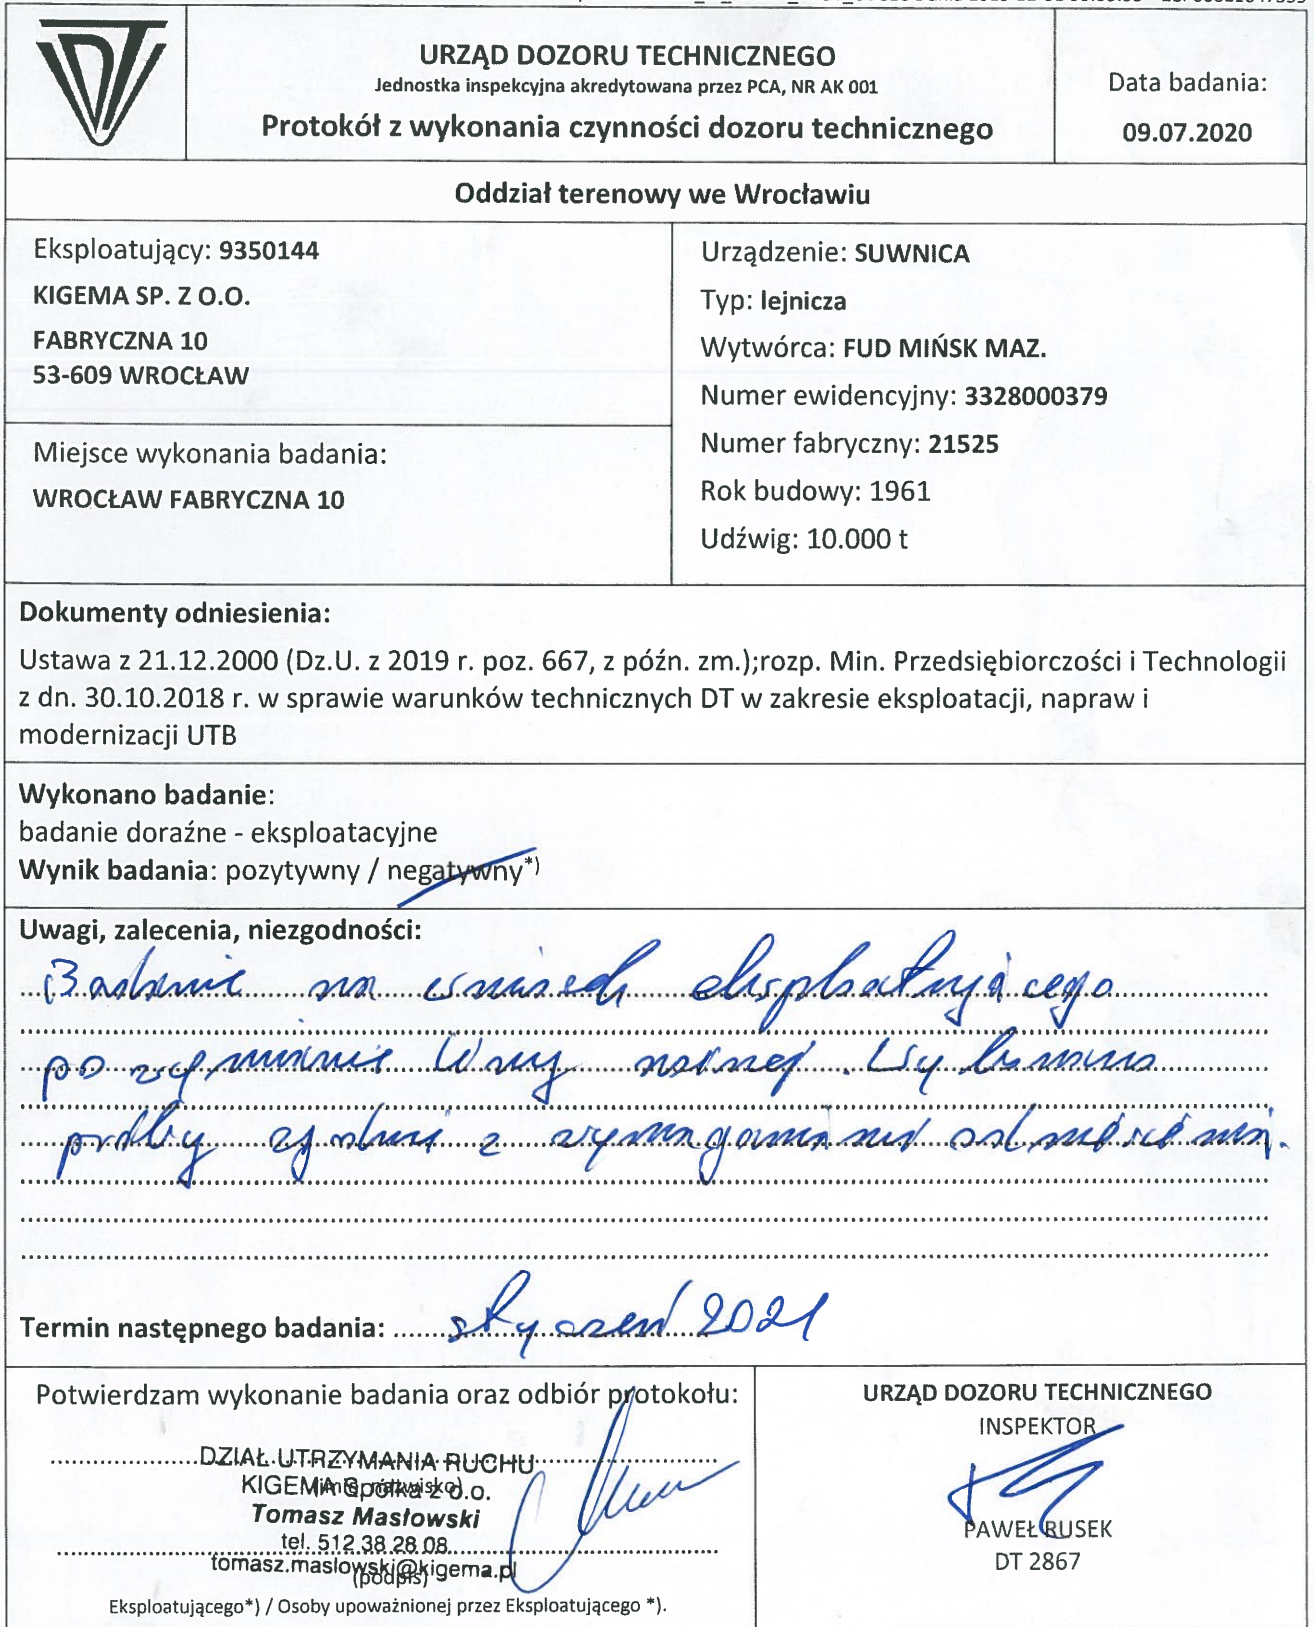 URZĄD DOZORU TECHNICZNEGO
Jednostka inspekcyjna akredytowana przez PCA, NR AK 001
Protokół z wykonania czynności dozoru technicznego
Data badania:
09.07.2020
Oddział terenowy we Wrocławiu
Eksploatujący: 9350144
KIGEMA SP. Z O.O.
FABRYCZNA 10
53-609 WROCŁAW
Miejsce wykonania badania:
WROCŁAW FABRYCZNA 10
Urządzenie: SUWNICA
Typ: lejnicza
Wytwórca: FUD MIŃSK MAZ.
Numer ewidencyjny: 3328000379
Numer fabryczny: 21525
Rok budowy: 1961
Udźwig: 10.000 t
Dokumenty odniesienia:
Ustawa z 21.12.2000 (Dz.U. z 2019 r. poz. 667, z późn. zm.);rozp. Min. Przedsiębiorczości i Technologii
z dn. 30.10.2018 r. w sprawie warunków technicznych DT w zakresie eksploatacji, napraw i
modernizacji UTB
Wykonano badanie:
badanie doraźne - eksploatacyjne
Wynik badania: pozytywny / negatywny*)
Uwagi, zalecenia, niezgodności:
Badanie na wniosek eksploatującego
po wymianie liny nośnej. Wykonano
próby zgodnie z wymaganiami odniesienia.
Termin następnego badania: styczeń 2021
Potwierdzam wykonanie badania oraz odbiór protokołu:
DZIAŁ UTRZYMANIA RUCHU
KIGEMA Spółka z o.o.
(imię, nazwisko)
Tomasz Masłowski
tel. 512 38 28 08
tomasz.maslowski@kigema.pl
(podpis)
Eksploatującego*) / Osoby upoważnionej przez Eksploatującego *).
URZĄD DOZORU TECHNICZNEGO
INSPEKTOR
PAWEŁ RUSEK
DT 2867